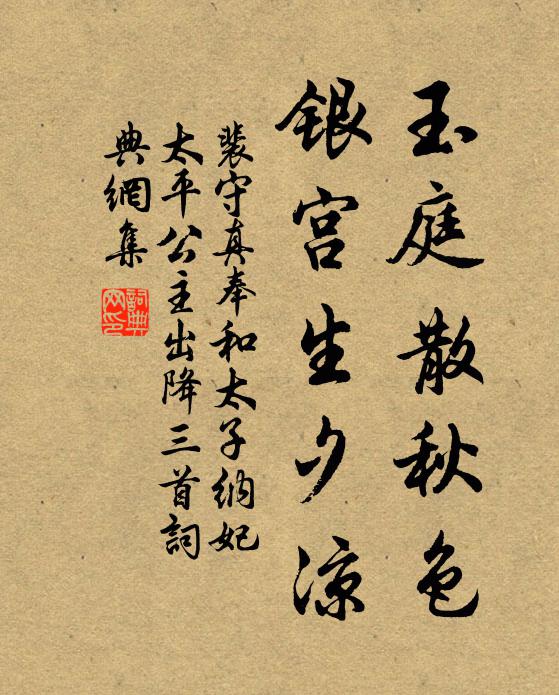 玉庭散秋色
銀宮生夕涼
裴守真奉和太子納妃
太平公主出降三首詞
典網集
詞典網印